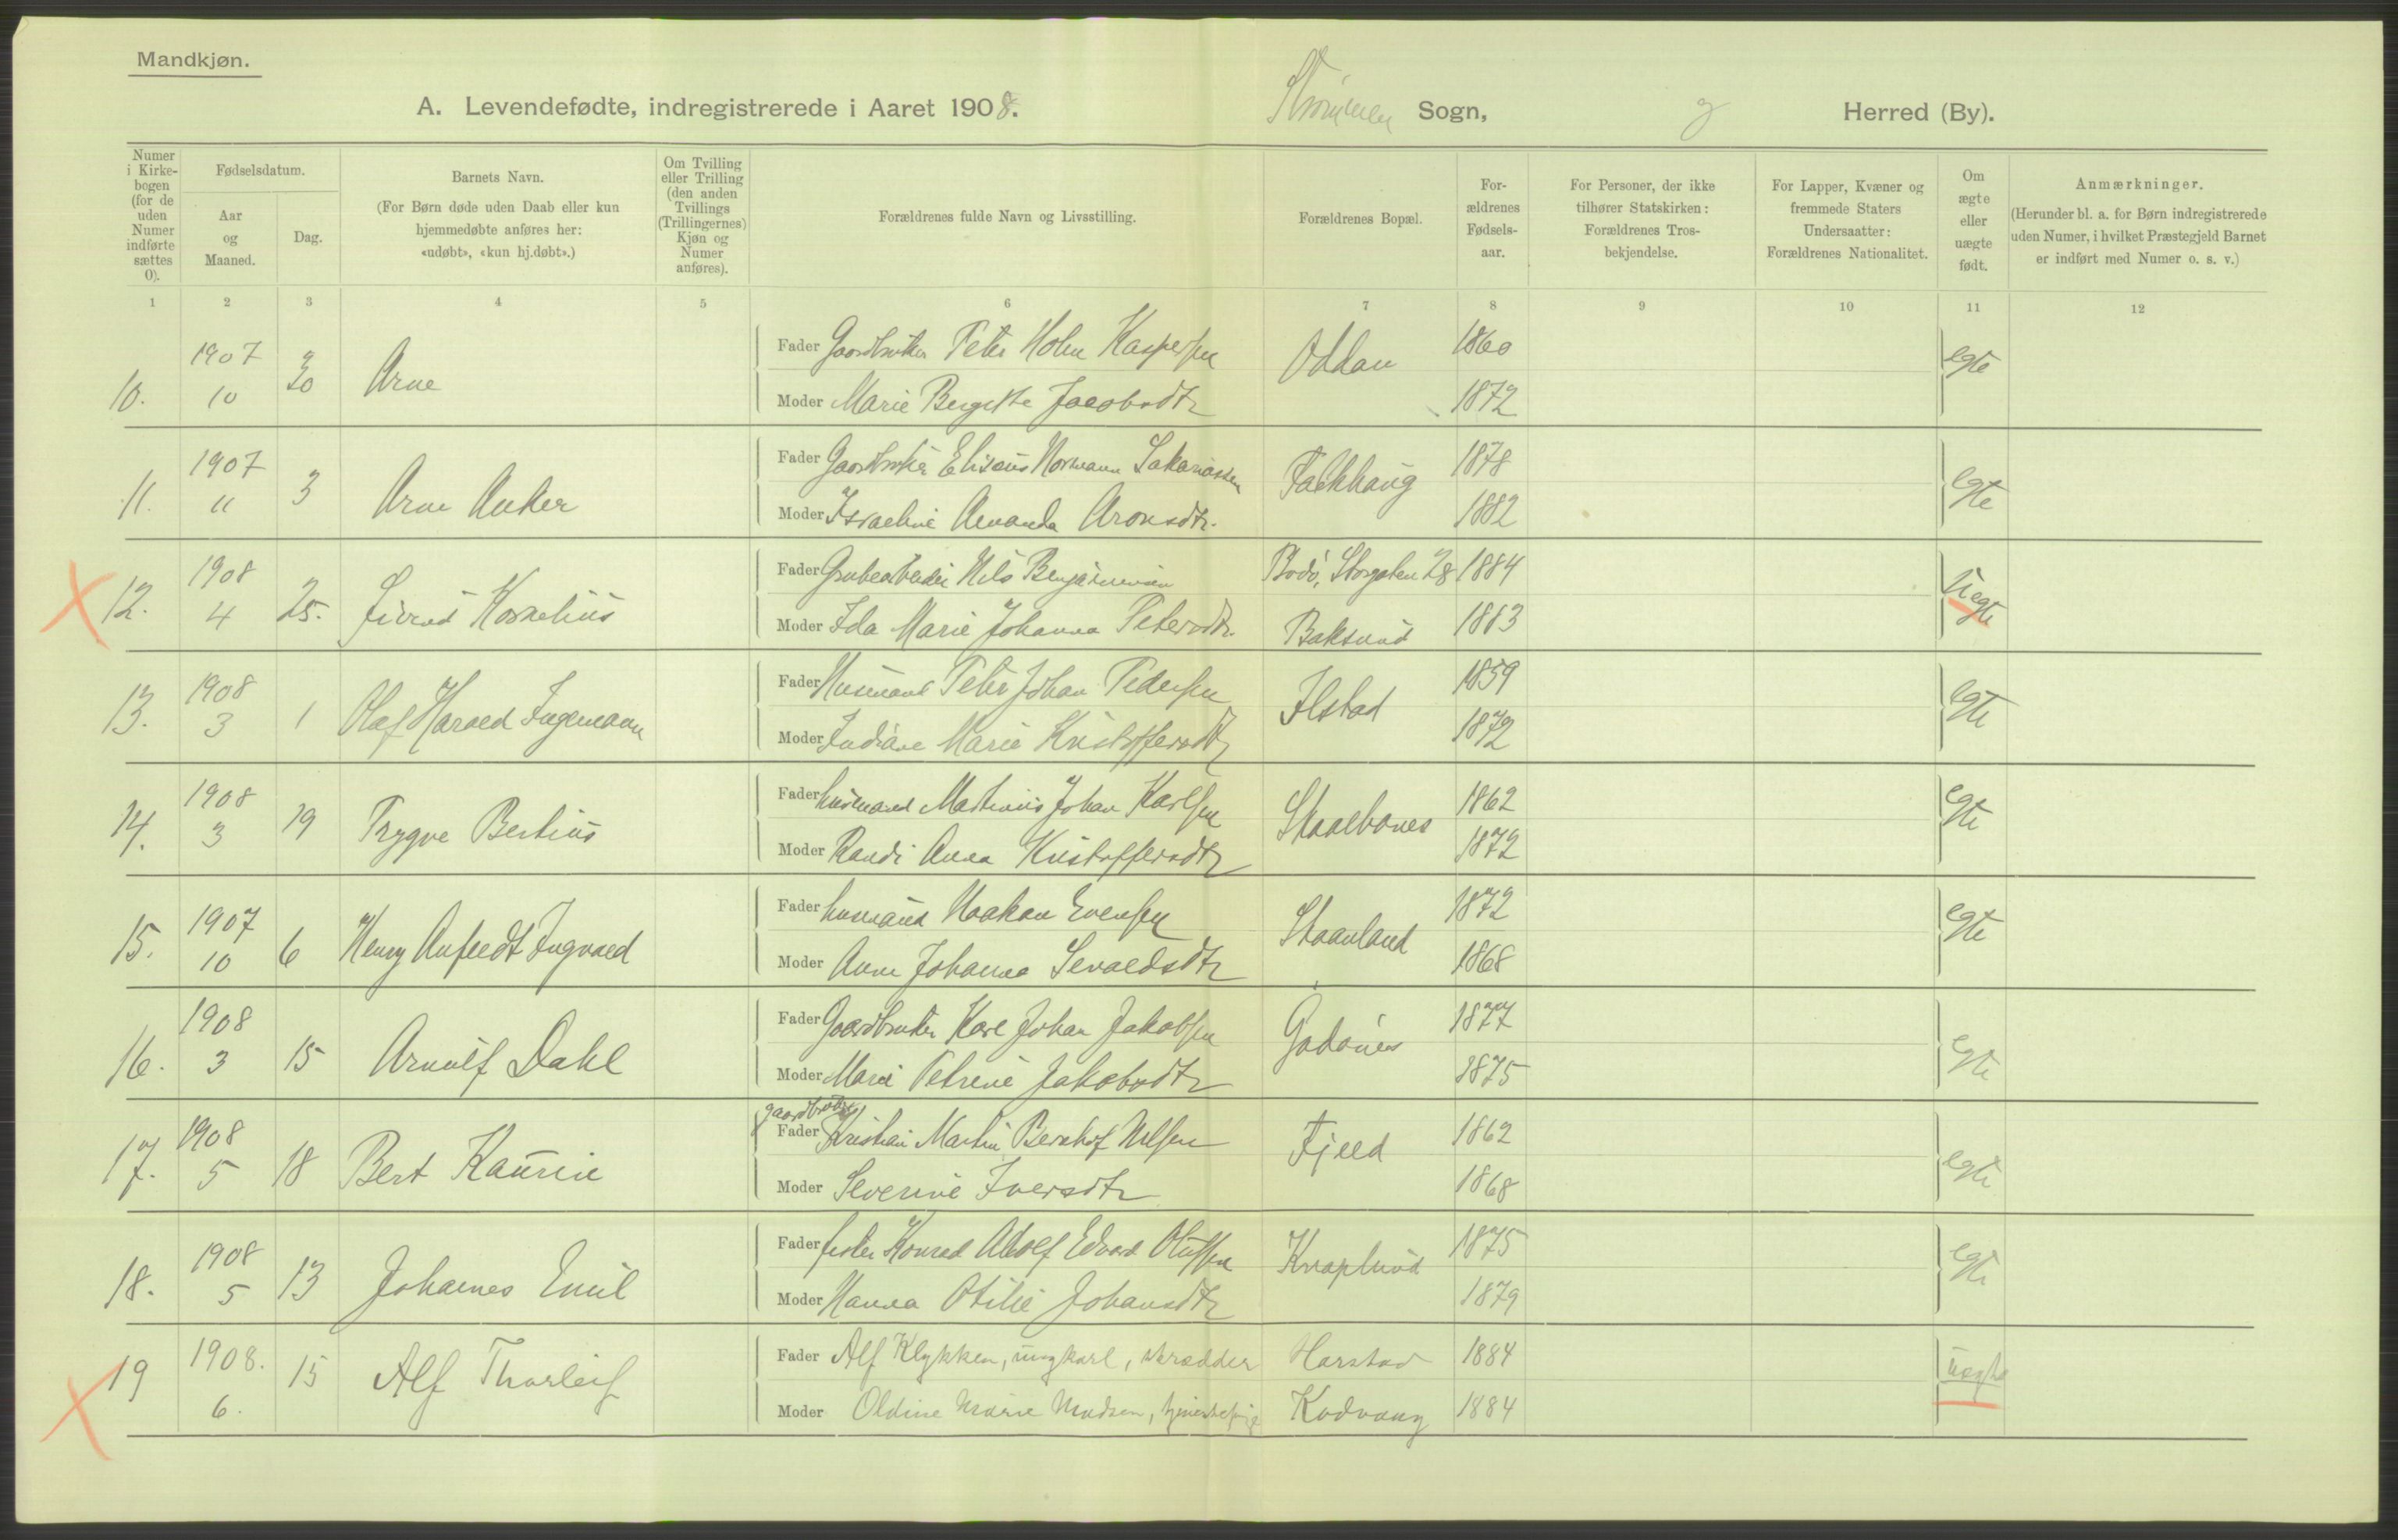 Mandkjøn.
A. Levendefødte, indregistrerede i Aaret 1908. Strømmen Sogn, Herred (By).
Numer i Kirke-bogen (for de uden Numer indførte sættes 0).
Fødselsdatum.
Aar og Maaned.
Dag.
Barnets Navn.
(For Børn døde uden Daab eller kun hjemmedøbte anføres her: «udøbt», «kun hj.døbt».)
Om Tvilling eller Trilling (den anden Tvillings (Trillingernes) Kjøn og Numer anføres).
Forældrenes fulde Navn og Livsstilling.
Forældrenes Bopæl.
For-ældrenes Fødsels-aar.
For Personer, der ikke tilhører Statskirken: Forældrenes Tros-bekjendelse.
For Lapper, Kvæner og fremmede Staters Undersaatter: Forældrenes Nationalitet.
Om ægte eller uægte født.
Anmærkninger.
(Herunder bl. a. for Børn indregistrerede uden Numer, i hvilket Præstegjeld Barnet er indført med Numer o. s. v.)
1 2 3 4 5 6 7 8 9 10 11 12
10. 1907 10 30 Arne Fader Gaardbruker Peter Holm Kaspersen Oddan 1860 egte
Moder Marie Bergitte Jacobsdtr 1872
11. 1907 11 3 Arne Anker Fader Gaardbruker Eliseus Normann Sakariassen Falkhaug 1878 egte
Moder Israeline Amanda Aronsdtr. 1882
12. 1908 4 25. Kornelius Fader Grubearbeider Nils Benjaminsen Bodø, Storgaten 28 1884 Uegte
Moder Ida Marie Johanna Petersdtr. Baksund 1883
13. 1908 3 1 Olaf Harald Ingemann Fader Husmand Peter Johan Pedersen Ilstad 1859 egte
Moder Indiane Marie Kristoffersdtr 1872
14. 1908 3 19 Trygve Bertius Fader husmand Martinius Johan Karlsen Skaalbones 1862 egte
Moder Randi Anna Kristoffersdtr 1872
15. 1907 10 6 Henry Anfeldt Ingvald Fader husmand Haakon Evensen Skaanland 1872 egte
Moder Anne Johanna Sevaldsdtr 1868
16. 1908 3 15 Arnulf Dahl Fader Gaardbruker Karl Johan Jakobsen Godønes 1877 egte
Moder Marie Petrine Jakobsdtr 1875
17. 1908 5 18 Bert Kaurin gaardbruker Fader Kristian Martin Bernhof Nilsen Fjeld 1862 egte
Moder Severine Iversdtr 1868
18. 1908 5 13 Johannes Emil Fader fisker Konrad Adolf Edvard Olufsen Knaplund 1875 egte
Moder Hanna Otilie Johansdtr 1879
19 1908. 6. 15 Alf Thorleif Fader Alf Klykken, ungkarl, skrædder Harstad 1884 uægte
Moder Oldine Marie Madsen, tjenestepige Kodvaag 1884